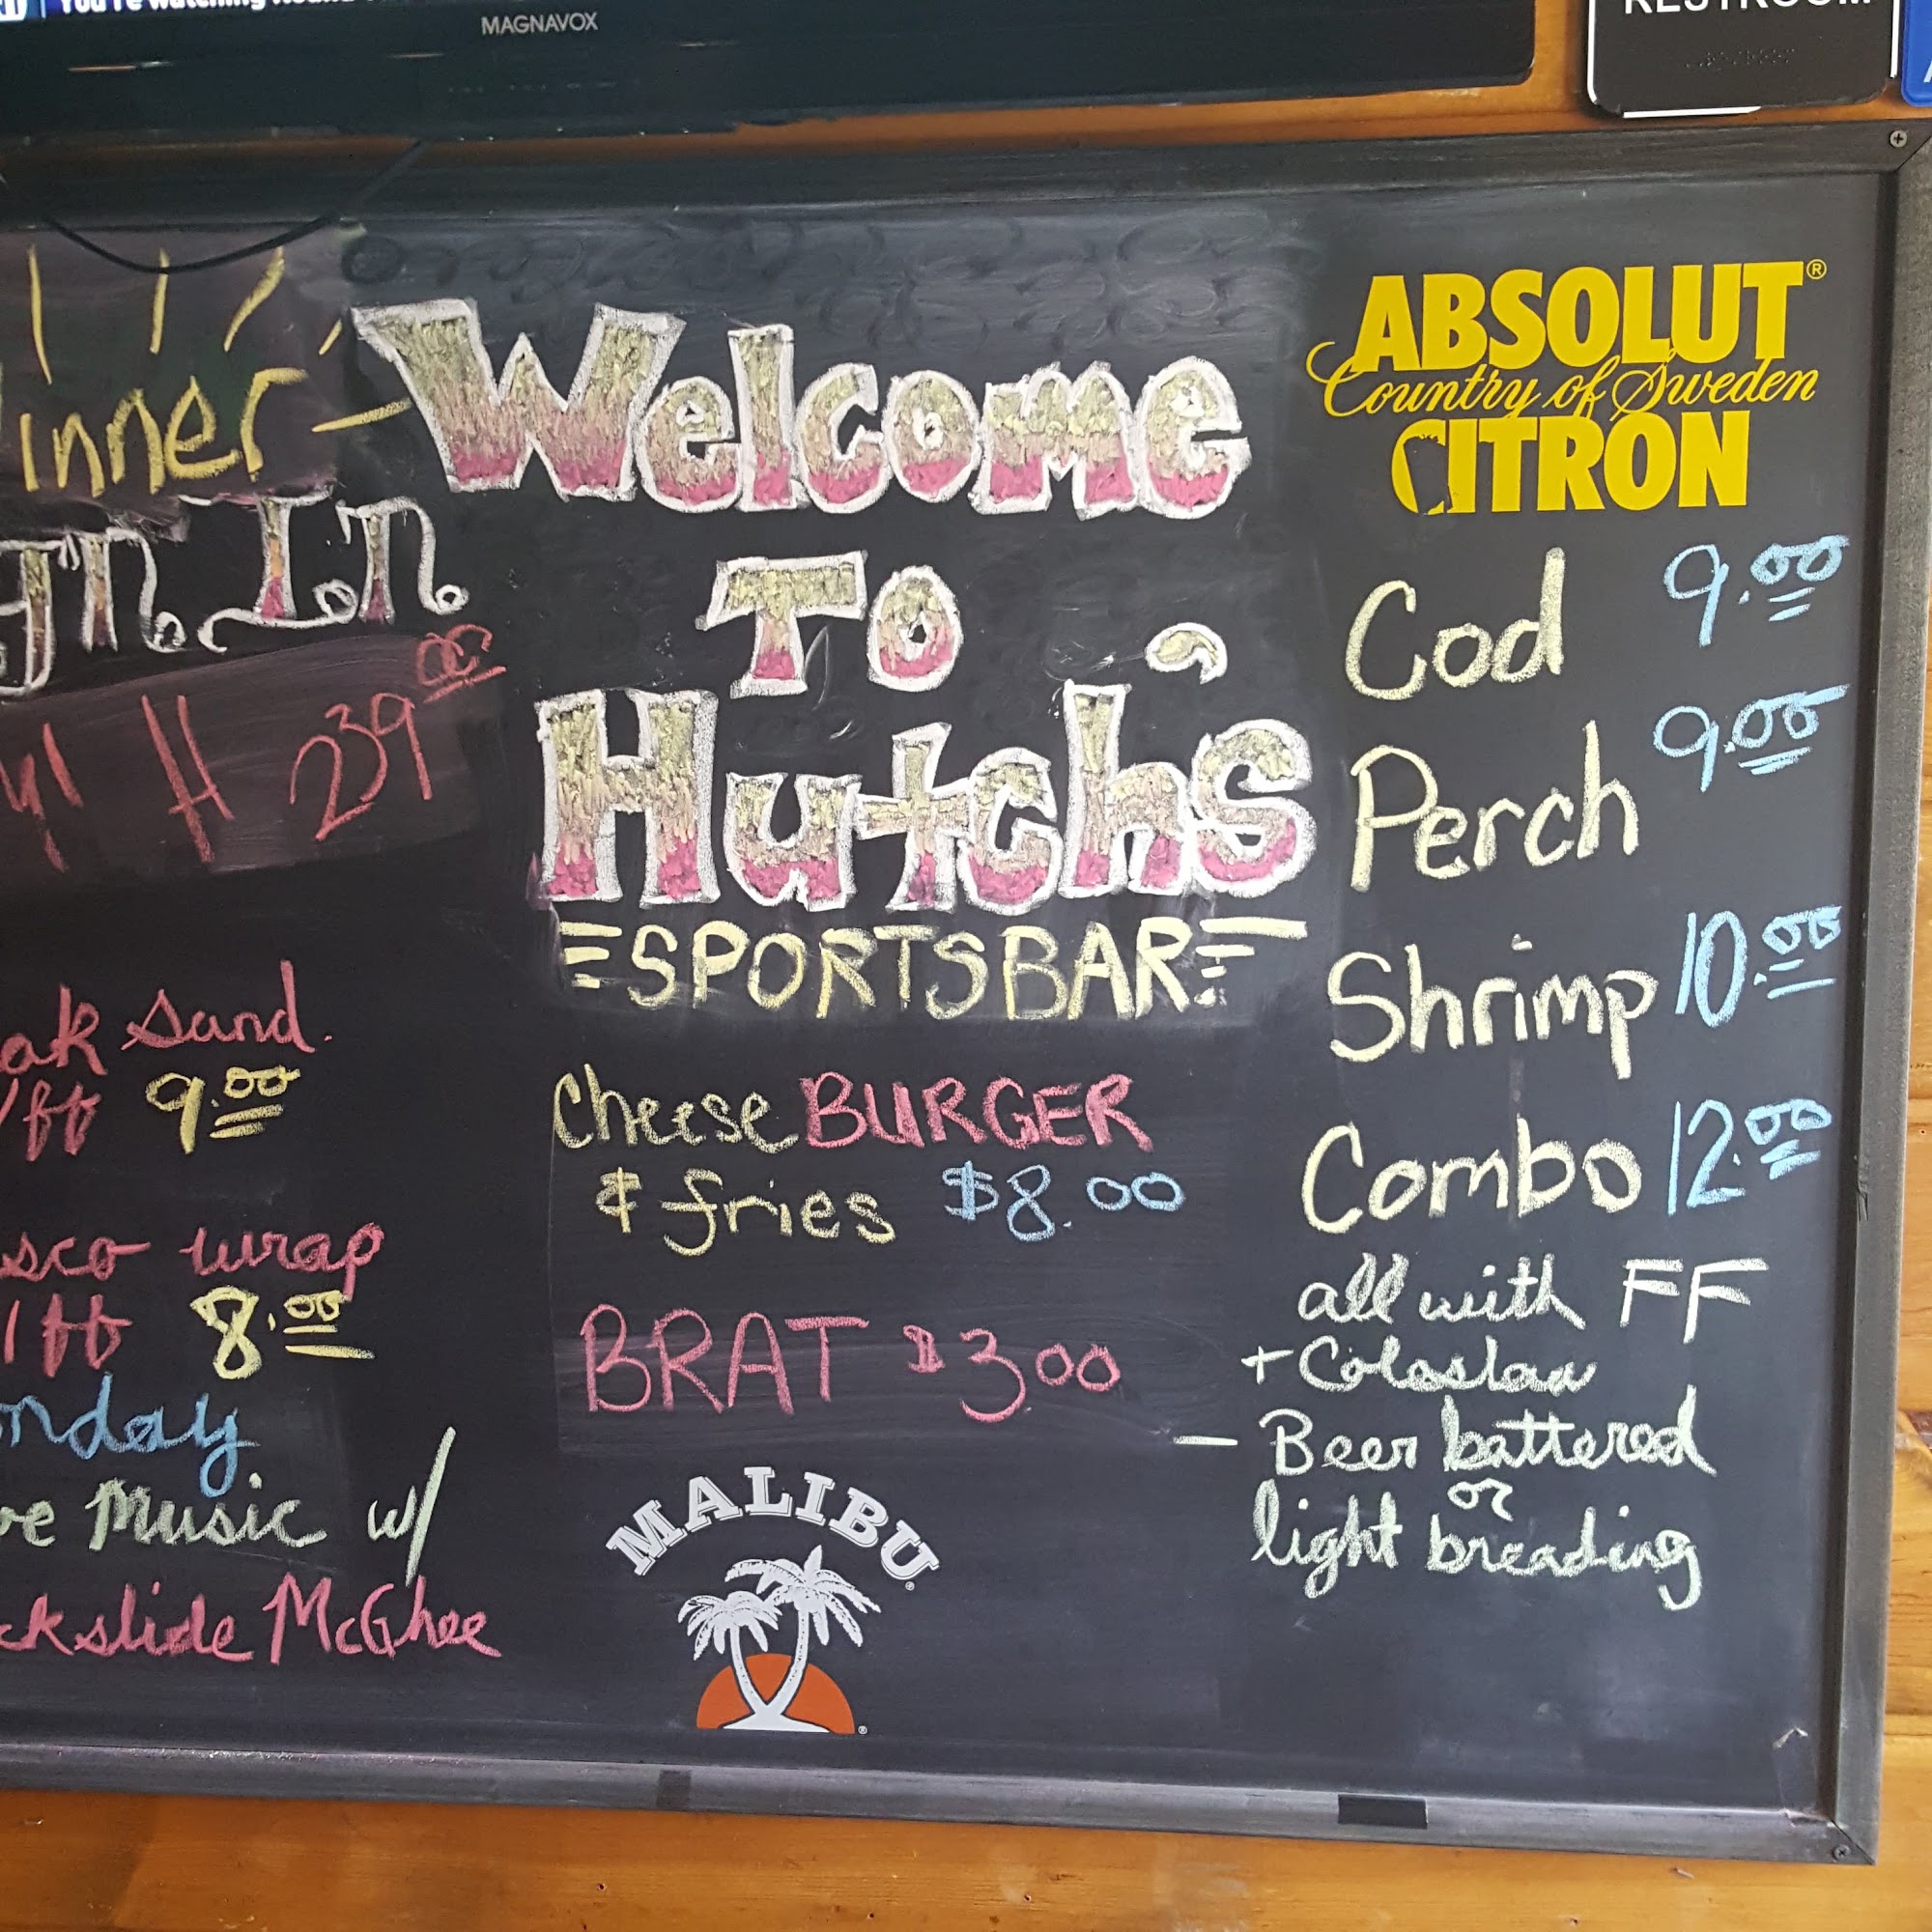 You're watching
MAGNAVOX
RESTROOM
inner
In
H 239.00
ak Sand.
/ff 9.00
sco wrap
/ff 8.00
nday
ve Music w/
ckslide McGhee
Welcome
To
Hutch's
SPORTSBAR
Cheese BURGER
& fries $8.00
BRAT $3.00
MALIBU
ABSOLUT®
Country of Sweden
CITRON
Cod 9.00
Perch 9.00
Shrimp 10.00
Combo 12.00
all with FF
+ Coleslaw
- Beer battered
or
light breading